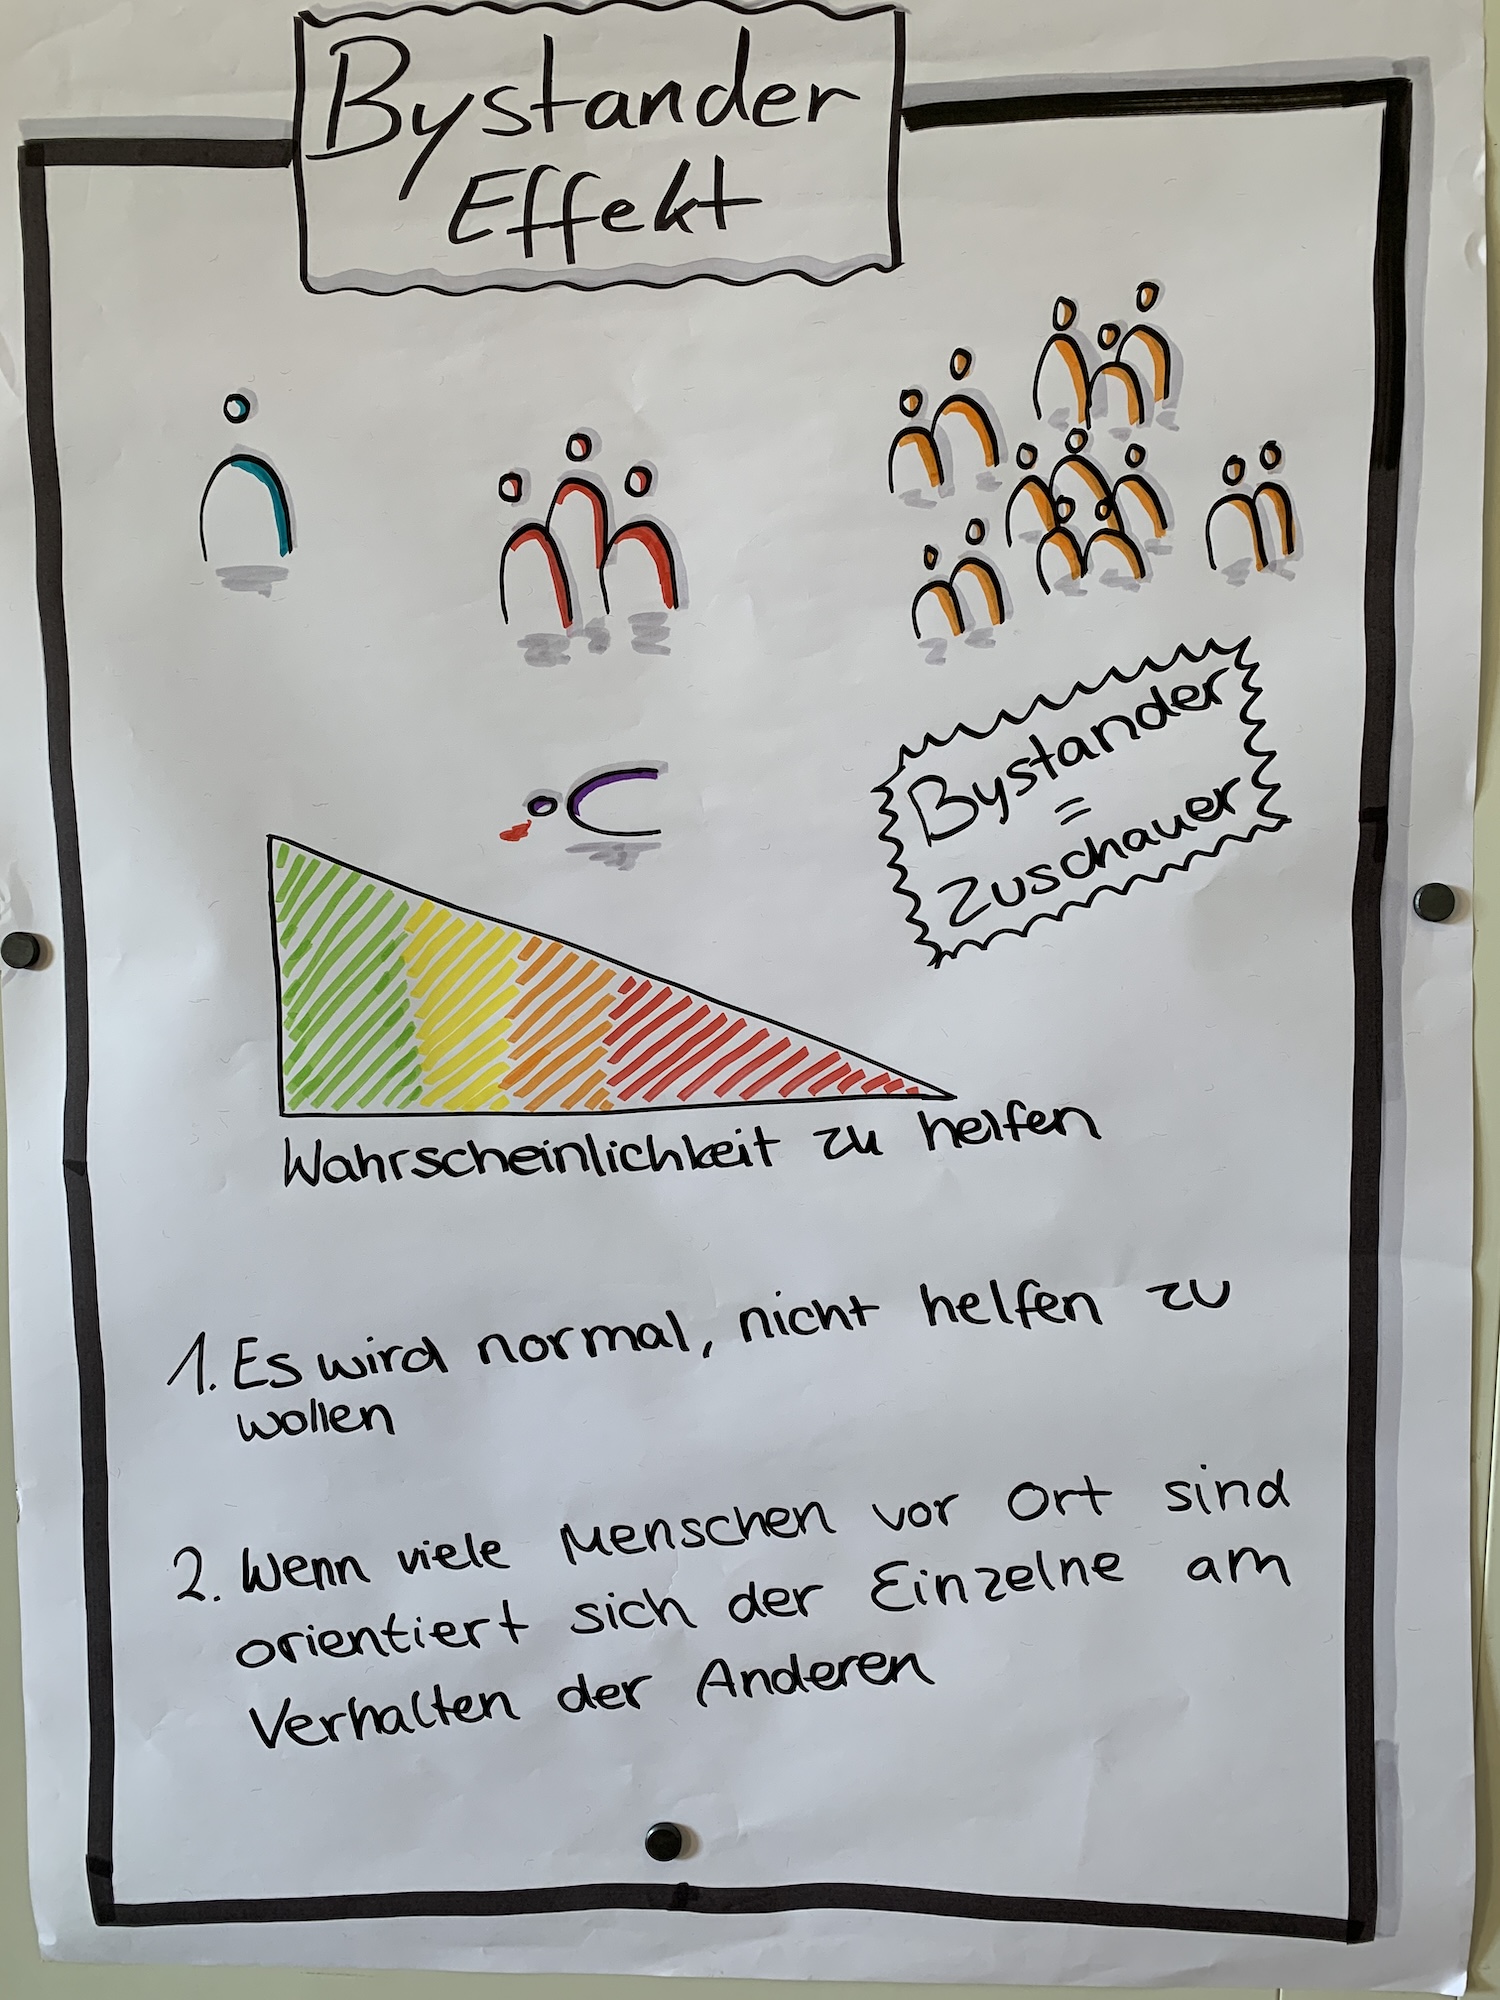 Bystander
Effekt
Bystander
=
Zuschauer
Wahrscheinlichkeit zu helfen
1. Es wird normal, nicht helfen zu
wollen
2. Wenn viele Menschen vor Ort sind
orientiert sich der Einzelne am
Verhalten der Anderen